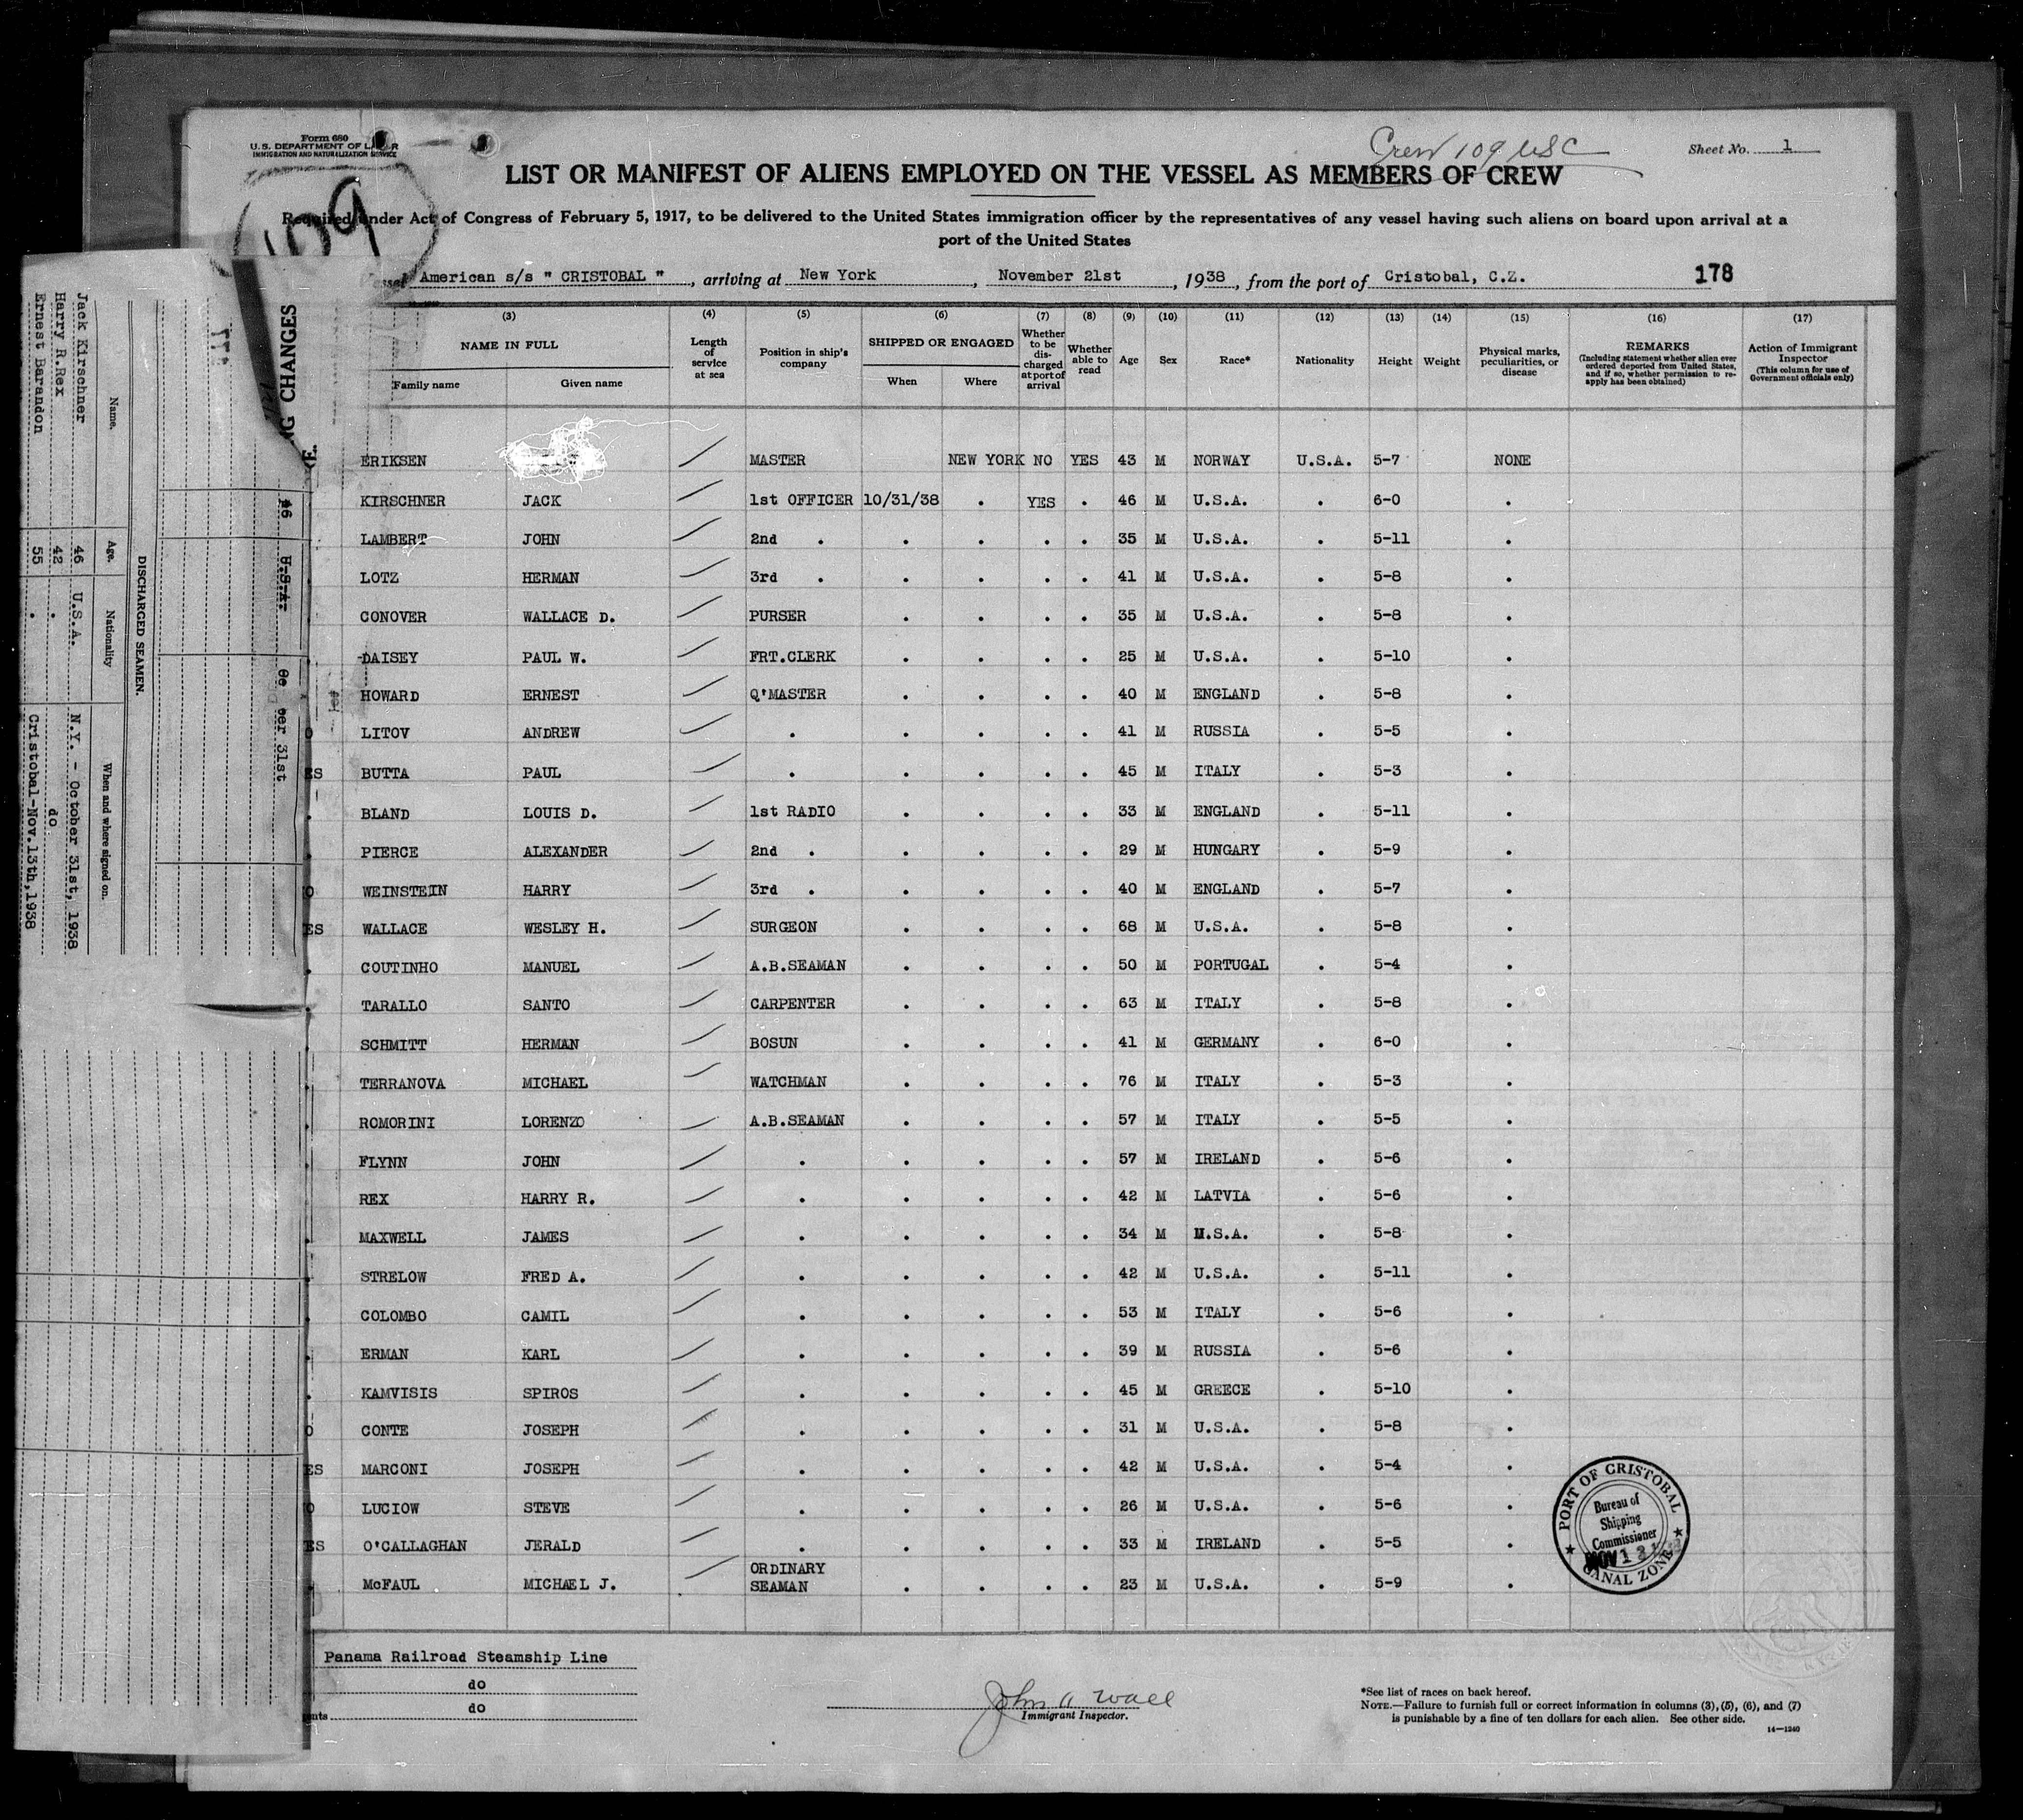 Form 680
U.S. DEPARTMENT OF LABOR
IMMIGRATION AND NATURALIZATION SERVICE
Crew 109 USC
Sheet No. 1
LIST OR MANIFEST OF ALIENS EMPLOYED ON THE VESSEL AS MEMBERS OF CREW
109
Required under Act of Congress of February 5, 1917, to be delivered to the United States immigration officer by the representatives of any vessel having such aliens on board upon arrival at a
port of the United States
Vessel American s/s " CRISTOBAL ", arriving at New York, November 21st, 1938, from the port of Cristobal, C.Z. 178
(3) (4) (5) (6) (7) (8) (9) (10) (11) (12) (13) (14) (15) (16) (17)
NAME IN FULL Family name Given name
Length of service at sea
Position in ship's company
SHIPPED OR ENGAGED When Where
Whether to be discharged at port of arrival
Whether able to read
Age Sex Race* Nationality Height Weight
Physical marks, peculiarities, or disease
REMARKS (Including statement whether alien ever ordered deported from United States, and if so, whether permission to re-apply has been obtained)
Action of Immigrant Inspector (This column for use of Government officials only)
ERIKSEN MASTER NEW YORK NO YES 43 M NORWAY U.S.A. 5-7 NONE
KIRSCHNER JACK 1st OFFICER 10/31/38 . YES . 46 M U.S.A. . 6-0 .
LAMBERT JOHN 2nd . . . . . 35 M U.S.A. . 5-11 .
LOTZ HERMAN 3rd . . . . . 41 M U.S.A. . 5-8 .
CONOVER WALLACE D. PURSER . . . . 35 M U.S.A. . 5-8 .
DAISEY PAUL W. FRT.CLERK . . . . 25 M U.S.A. . 5-10 .
HOWARD ERNEST Q'MASTER . . . . 40 M ENGLAND . 5-8 .
LITOV ANDREW . . . . . 41 M RUSSIA . 5-5 .
ES BUTTA PAUL . . . . . 45 M ITALY . 5-3 .
BLAND LOUIS D. 1st RADIO . . . . 33 M ENGLAND . 5-11 .
PIERCE ALEXANDER 2nd . . . . . 29 M HUNGARY . 5-9 .
WEINSTEIN HARRY 3rd . . . . . 40 M ENGLAND . 5-7 .
ES WALLACE WESLEY H. SURGEON . . . . 68 M U.S.A. . 5-8 .
COUTINHO MANUEL A.B.SEAMAN . . . . 50 M PORTUGAL . 5-4 .
TARALLO SANTO CARPENTER . . . . 63 M ITALY . 5-8 .
SCHMITT HERMAN BOSUN . . . . 41 M GERMANY . 6-0 .
TERRANOVA MICHAEL WATCHMAN . . . . 76 M ITALY . 5-3 .
ROMORINI LORENZO A.B.SEAMAN . . . . 57 M ITALY . 5-5 .
FLYNN JOHN . . . . . 57 M IRELAND . 5-6 .
REX HARRY R. . . . . . 42 M LATVIA . 5-6 .
MAXWELL JAMES . . . . . 34 M U.S.A. . 5-8 .
STRELOW FRED A. . . . . . 42 M U.S.A. . 5-11 .
COLOMBO CAMIL . . . . . 53 M ITALY . 5-6 .
ERMAN KARL . . . . . 39 M RUSSIA . 5-6 .
KAMVISIS SPIROS . . . . . 45 M GREECE . 5-10 .
CONTE JOSEPH . . . . . 31 M U.S.A. . 5-8 .
ES MARCONI JOSEPH . . . . . 42 M U.S.A. . 5-4 .
LUCIOW STEVE . . . . . 26 M U.S.A. . 5-6 .
ES O'CALLAGHAN JERALD . . . . . 33 M IRELAND . 5-5 .
McFAUL MICHAEL J. ORDINARY SEAMAN . . . . 23 M U.S.A. . 5-9 .
PORT OF CRISTOBAL
Bureau of
Shipping
Commissioner
NOV
CANAL ZONE
Panama Railroad Steamship Line
do
do
John A Wall
Immigrant Inspector.
*See list of races on back hereof.
NOTE.—Failure to furnish full or correct information in columns (3), (5), (6), and (7)
is punishable by a fine of ten dollars for each alien. See other side.
14—1240
NG CHANGES
46 U.S.A. er 31st
DISCHARGED SEAMEN.
Name. Age. Nationality When and where signed on.
Jack Kirschner 46 U.S.A. N.Y. - October 31st, 1938
Harry R.Rex 42 . do
Ernest Barandon 55 . Cristobal-Nov.13th,1938